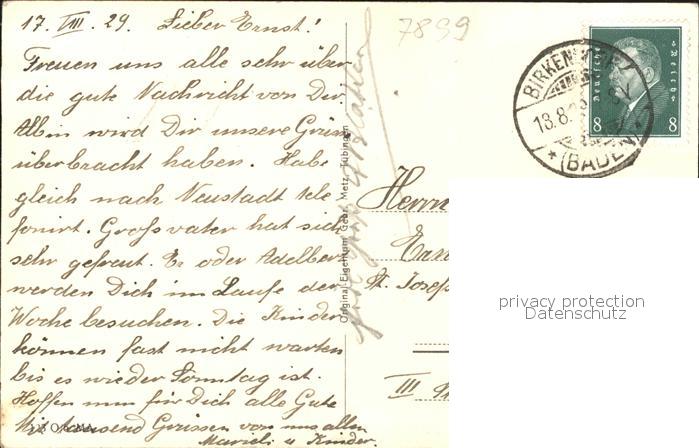 17. VIII. 29. Lieber Ernst!
Freuen uns alle sehr über
die gute Nachricht von Dir.
Albin wird Dir unsere Grüsse
überbracht haben. Habe
gleich nach Neustadt tele-
fonirt. Grossvater hat sich
sehr gefreut. Er oder Adelbert
werden Dich im Laufe der
Woche besuchen. Die Kinder
können fast nicht warten
bis es wieder Sonntag ist.
Hoffen nun für Dich alle Gute
Mit tausend Grüssen von uns allen
u Kinder.
Original-Eigentum Gebr. Metz, Tübingen
7899
Deutsches Reich
8 8
BIRKENDORF
(BADEN)
Herrn
St. Josefs
III
privacy protection
Datenschutz